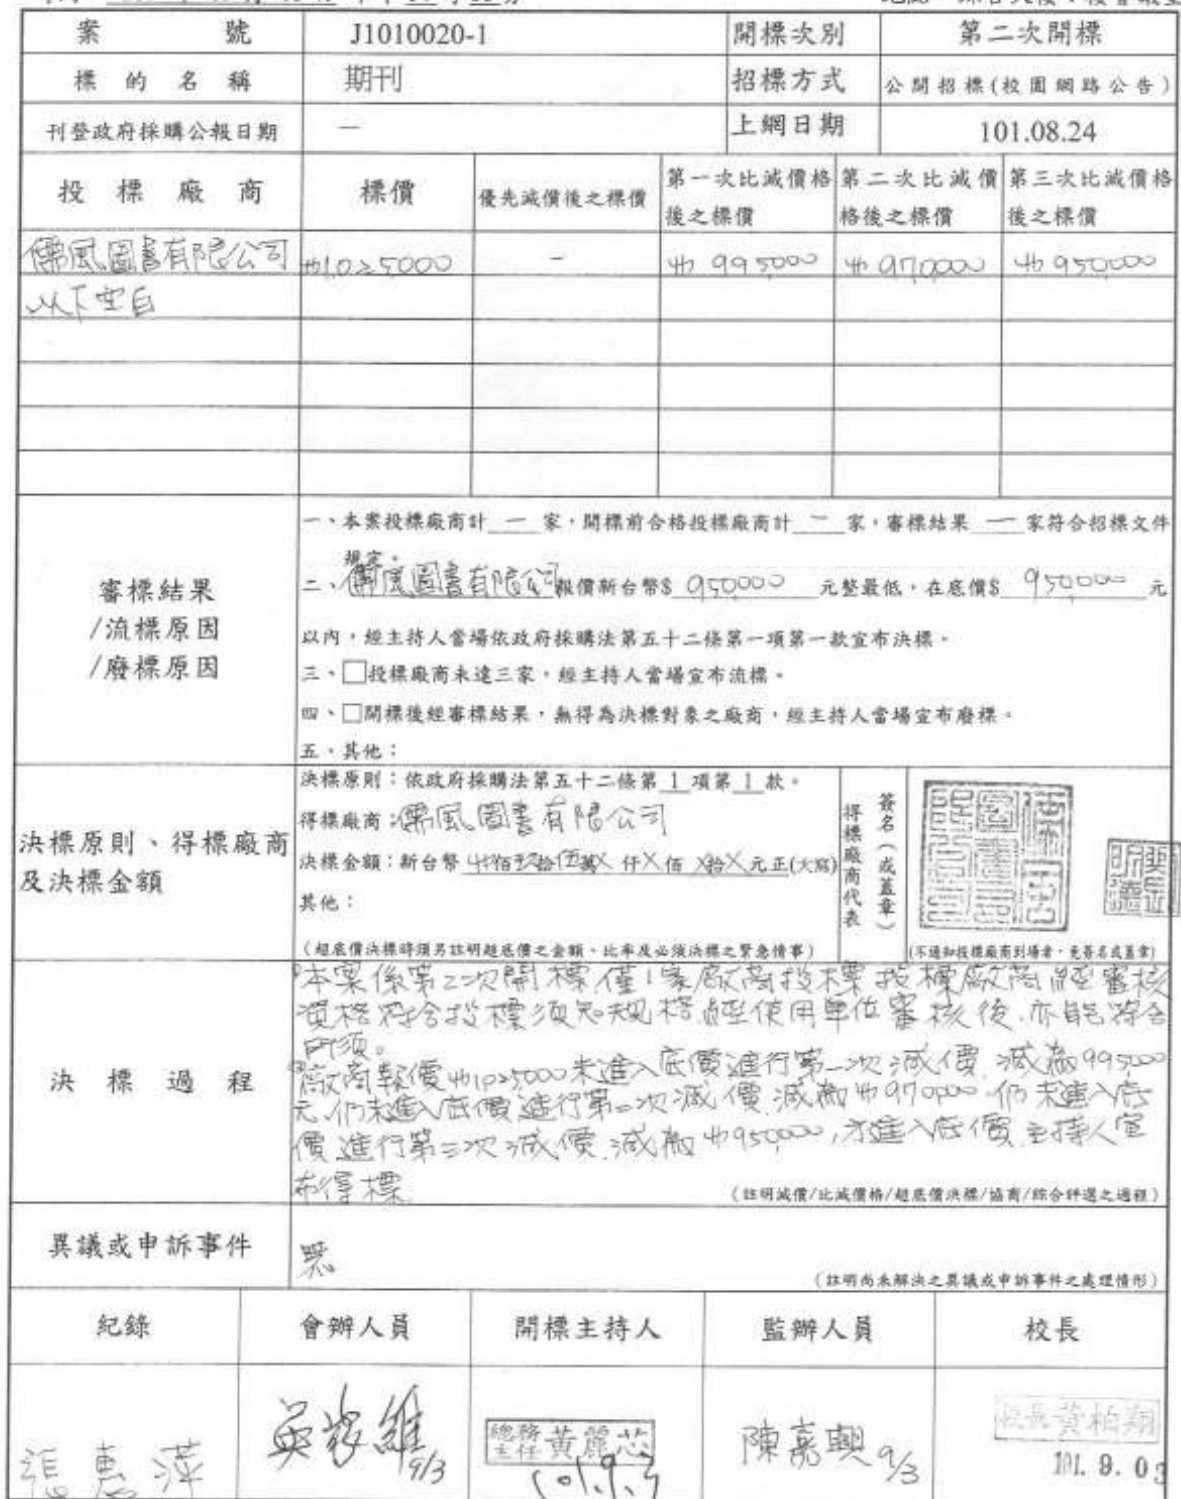 案 號 J1010020-1 開標次別 第二次開標
標 的 名 稱 期刊 招標方式 公開招標(校園網路公告)
刊登政府採購公報日期 — 上網日期 101.08.24
投 標 廠 商 標價 優先減價後之標價 第一次比減價格後之標價 第二次比減價格後之標價 第三次比減價格後之標價
儒風圖書有限公司 1,025000 - 995000 970,000 950,000
以下空白
審標結果
/流標原因
/廢標原因
一、本案投標廠商計 一 家,開標前合格投標廠商計 一 家,審標結果 一 家符合招標文件
規定。
二、儒風圖書有限公司報價新台幣$ 950000 元整最低,在底價$ 950,000 元
以內,經主持人當場依政府採購法第五十二條第一項第一款宣布決標。
三、□投標廠商未達三家,經主持人當場宣布流標。
四、□開標後經審標結果,無得為決標對象之廠商,經主持人當場宣布廢標。
五、其他:
決標原則、得標廠商
及決標金額
決標原則:依政府採購法第五十二條第 1 項第 1 款。
得標廠商:儒風圖書有限公司
決標金額:新台幣 佰玖拾伍萬X仟X佰X拾X元正(大寫)
其他:
(超底價決標時須另註明超底價之金額、比率及必須決標之緊急情事)
得標廠商代表
簽名(或蓋章)
(不通知投標廠商到場者,免簽名或蓋章)
決 標 過 程
本案係第二次開標僅1家廠商投標投標廠商經審核
資格符合投標須知規格經使用單位審核後亦能符合
所須。
廠商報價1,025000未進入底價進行第一次減價減為995000
元仍未進入底價進行第二次減價減為970,000仍未進入底
價進行第三次減價減為950,000,方進入底價主持人宣
布得標
(註明減價/比減價格/超底價決標/協商/綜合評選之過程)
異議或申訴事件 無
(註明尚未解決之異議或申訴事件之處理情形)
紀錄 會辦人員 開標主持人 監辦人員 校長
張惠萍 9/3 總務主任 黃麗芯 101.9.3 陳嘉興 9/3 校長黃柏翔
101.9.03